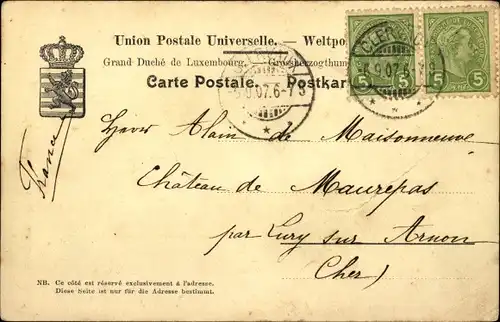 Union Postale Universelle. — Weltpo
Grand Duché de Luxembourg. — Grossherzogthum
Carte Postale. Postkar
CLER
5.9.07.6-7S
5.9.07.6
5 5 5
France
Herrn Alain de Maisonneuve
Château de Maurepas
par Lury sur Arnon
Cher)
NB. Ce côté est réservé exclusivement à l'adresse.
Diese Seite ist nur für die Adresse bestimmt.